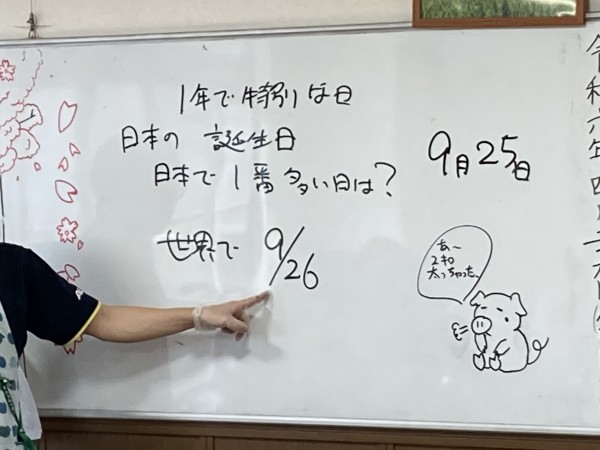 1年で特別な日
日本の 誕生日
日本で1番多い日は?
9月25日
世界で 9/26
あ〜
2キロ
太っちゃった、
令和六年四月